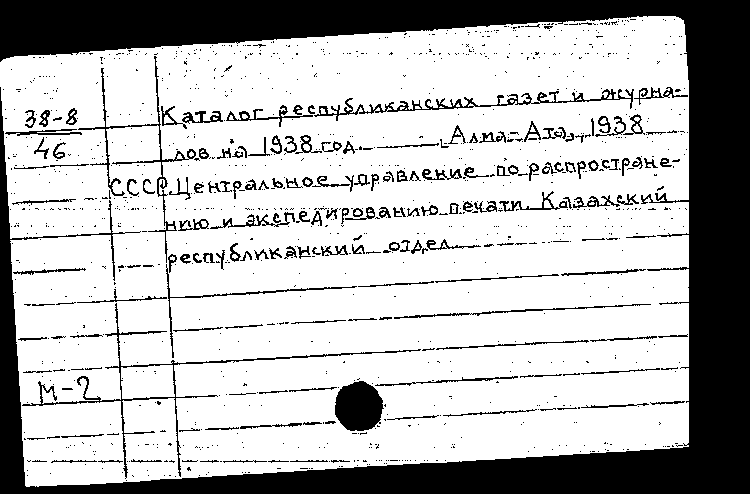 38-8
46
Каталог республиканских газет и журна-
лов на 1938 год. Алма-Ата, 1938
СССР. Центральное управление по распростране-
нию и экспедированию печати. Казахский
республиканский отдел
М-2